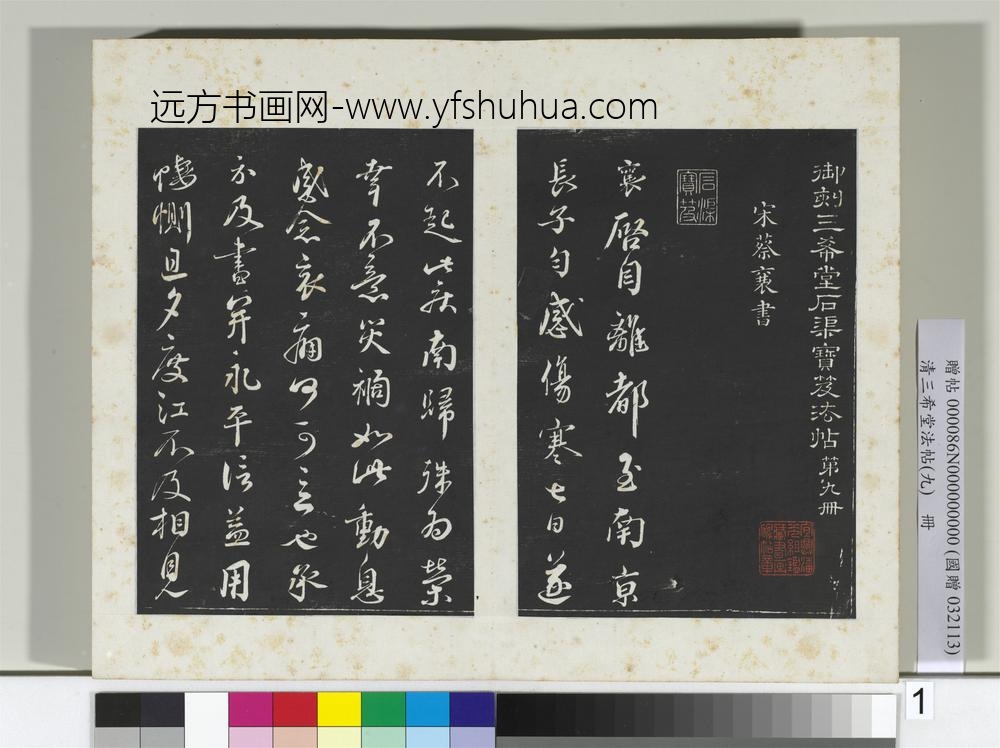 远方书画网-www.yfshuhua.com
御刻三希堂石渠寶笈法帖第九冊
宋蔡襄書
石渠寶笈
襄啓自離都至南京
長子勻感傷寒七日遂
不起此疾南歸殊爲榮
幸不意災禍如此動息
感念哀痛何可言也承
示及書并永平信益用
悽惻旦夕度江不及相見
贈帖 000086N000000000 (國贈 032113)
清三希堂法帖(九) 冊
1